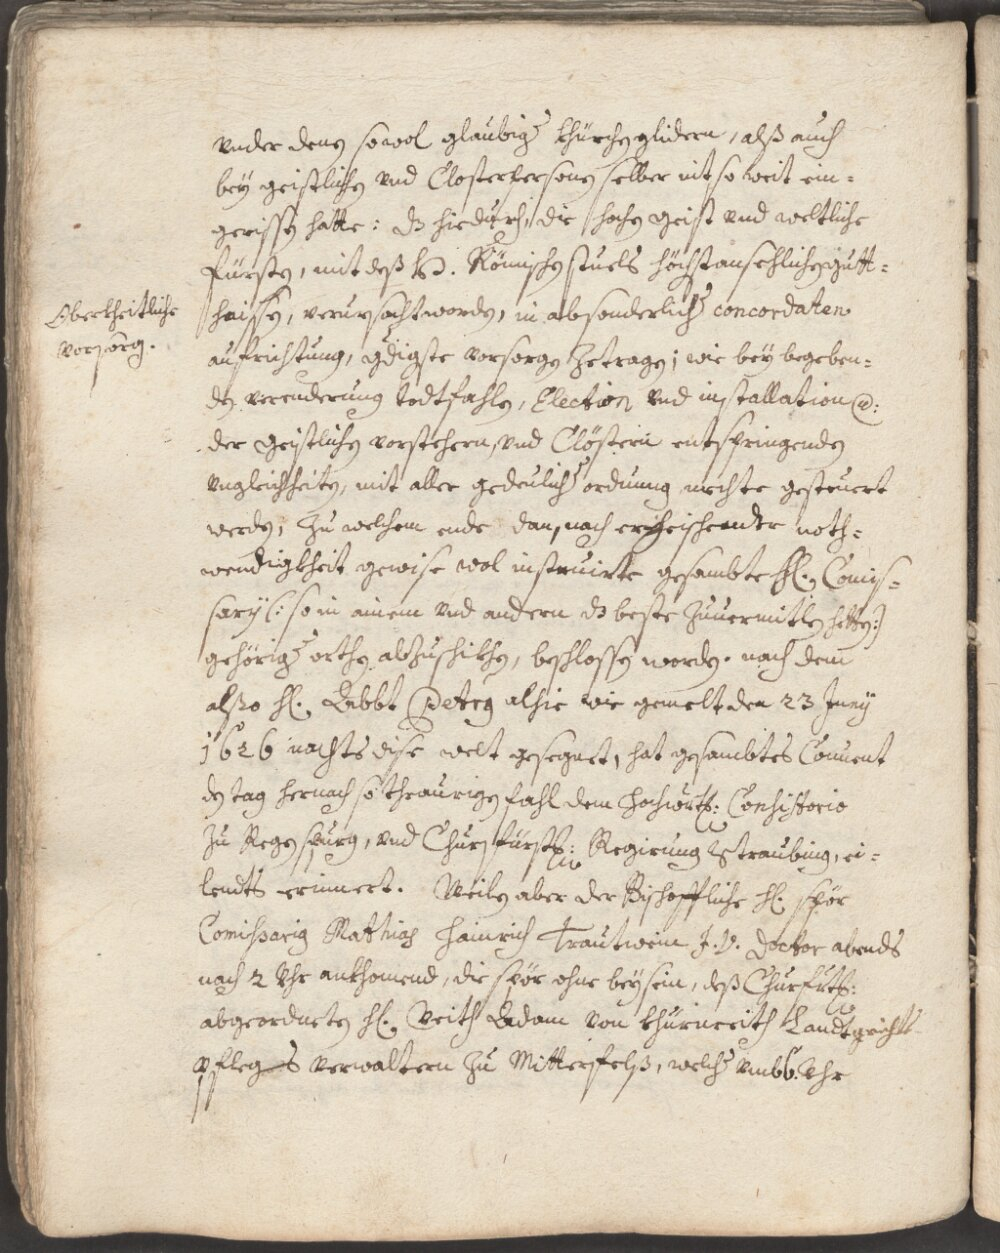 vnder denen sowol glaubigen khürchenglidern, alß auch
bey geistlichen vnd Closterpersonen selber nit so weit ein=
gerissen hatte: dz hiedurch, die hoche geist vnd weltliche
Fürsten, mit deß h. Römischen stuels höchstansehlichen gutt=
haissen, verursacht worden, in absonderlicher concordaten
Obrkheitliche
vorsorg.
aufrichtung, gdigste vorsorge zetragen; wie bey begeben=
den verenderung todtfahlen, Election vnd installation
der geistlichen vorstehern, vnd Clöstern entspringenden
vngleichheiten, mit aller gedeulicher ordnung mechte gesteuert
werden, Zu welchem ende dan, nach erheischender noth=
wendigkheit gewise wol instruirte gesambte H. Comis=
sarij (: so in ainem vnd andern dz beste zuuermitlen hetten:)
gehörigen orthen abzuschikhen, beschlossen worden. nach dem
alßo H. Abbt Peter alhie wie gemelt den 23 Junij
1626 nachts dise welt gesegnet, hat gesambtes Conuent
den tag hernach so thraurigen fahl dem hochwürd: Consistorio
zu Regenspurg, vnd Churfürstl: Regierung Straubing, ei=
lendts erinnert. Weilen aber der Bischoffliche H. spör
Comissarius Mathias Hainrich Trautwein J. V. Doctor abends
nach 2 Vhr ankhomend, die spör ohne beysein, deß Churfrtl:
abgeordneten H. Veith Adam von khürnreith Landtgerichts
pflegs verwaltern zu Mitterfelß, welcher vmb 6. Vhr